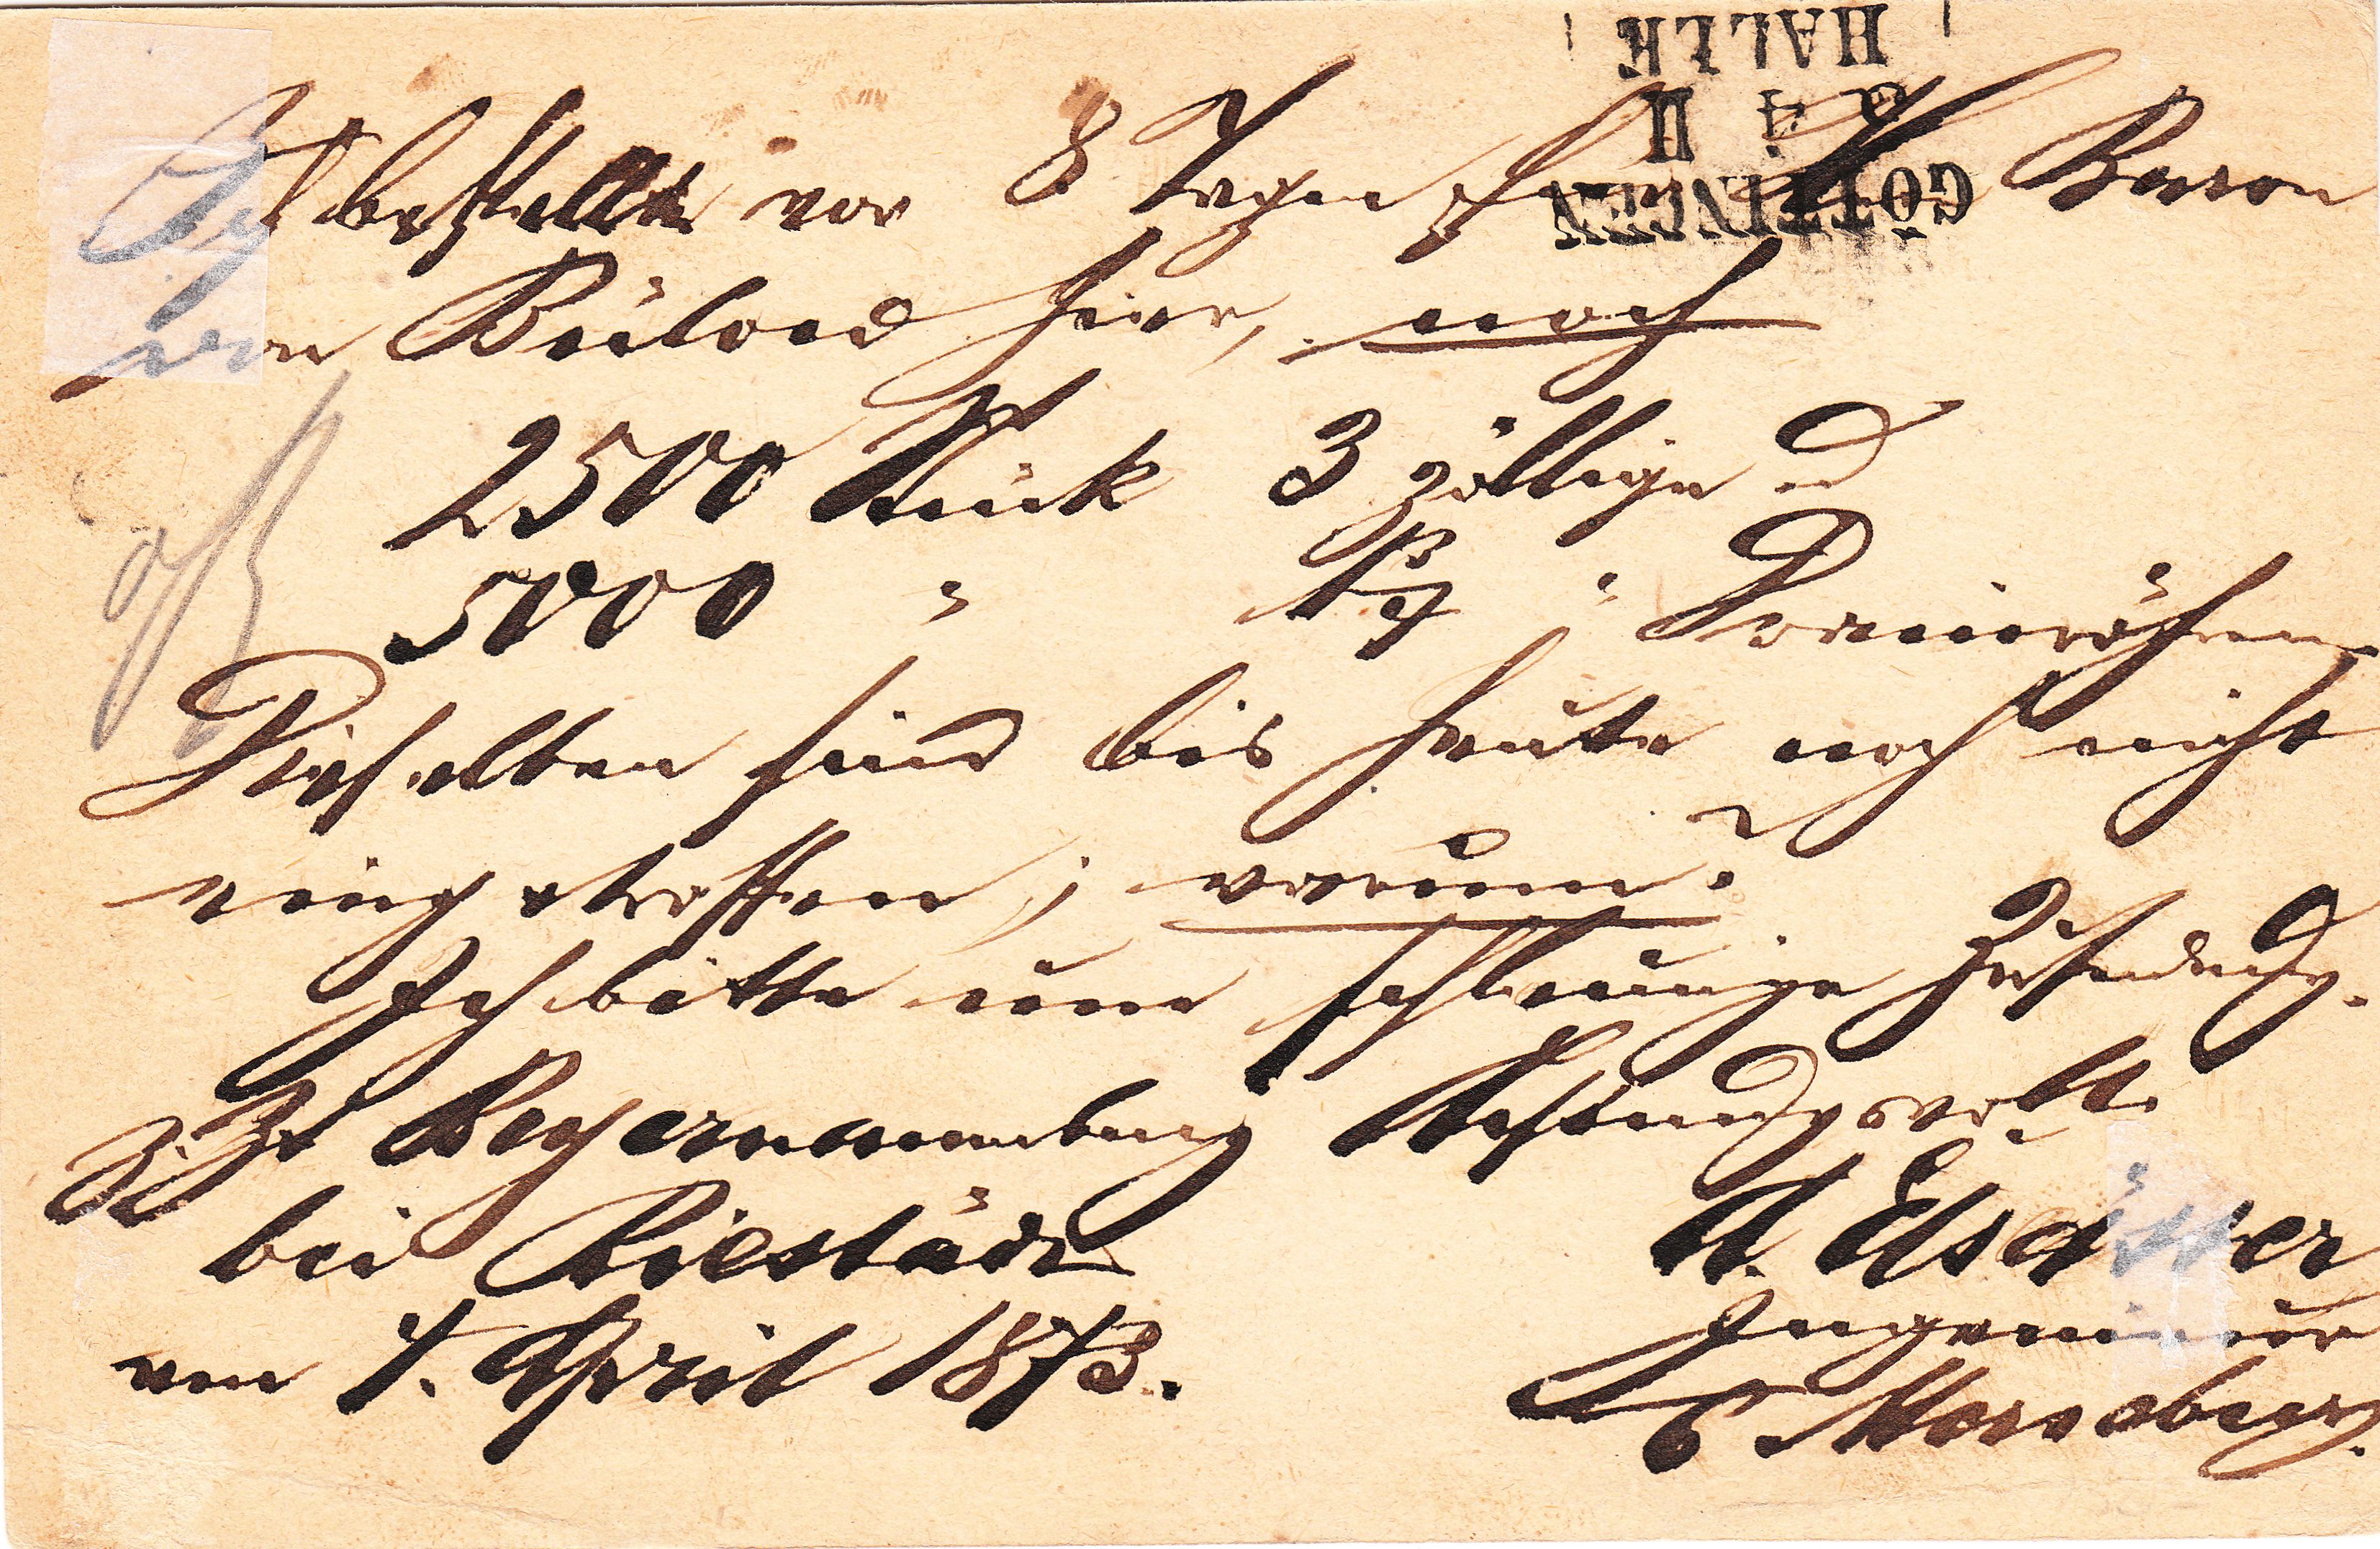 HALLE
4 II
GÖTTINGEN
Ich bestellte vor 8 Tagen für H Baron
von Bülow hier, noch
2500 Stück 3 zöllige D
5000 " 1 3/4 " Drainröhren
Dieselben sind bis heute noch nicht
eingetroffen; warum?
Ich bitte um schleunige Zusendung.
Z. Zt Beyernaumburg Achtungsvoll
bei Riestädt A. Elsässer
am 4. April 1873. Ingenieur
Merseburg.